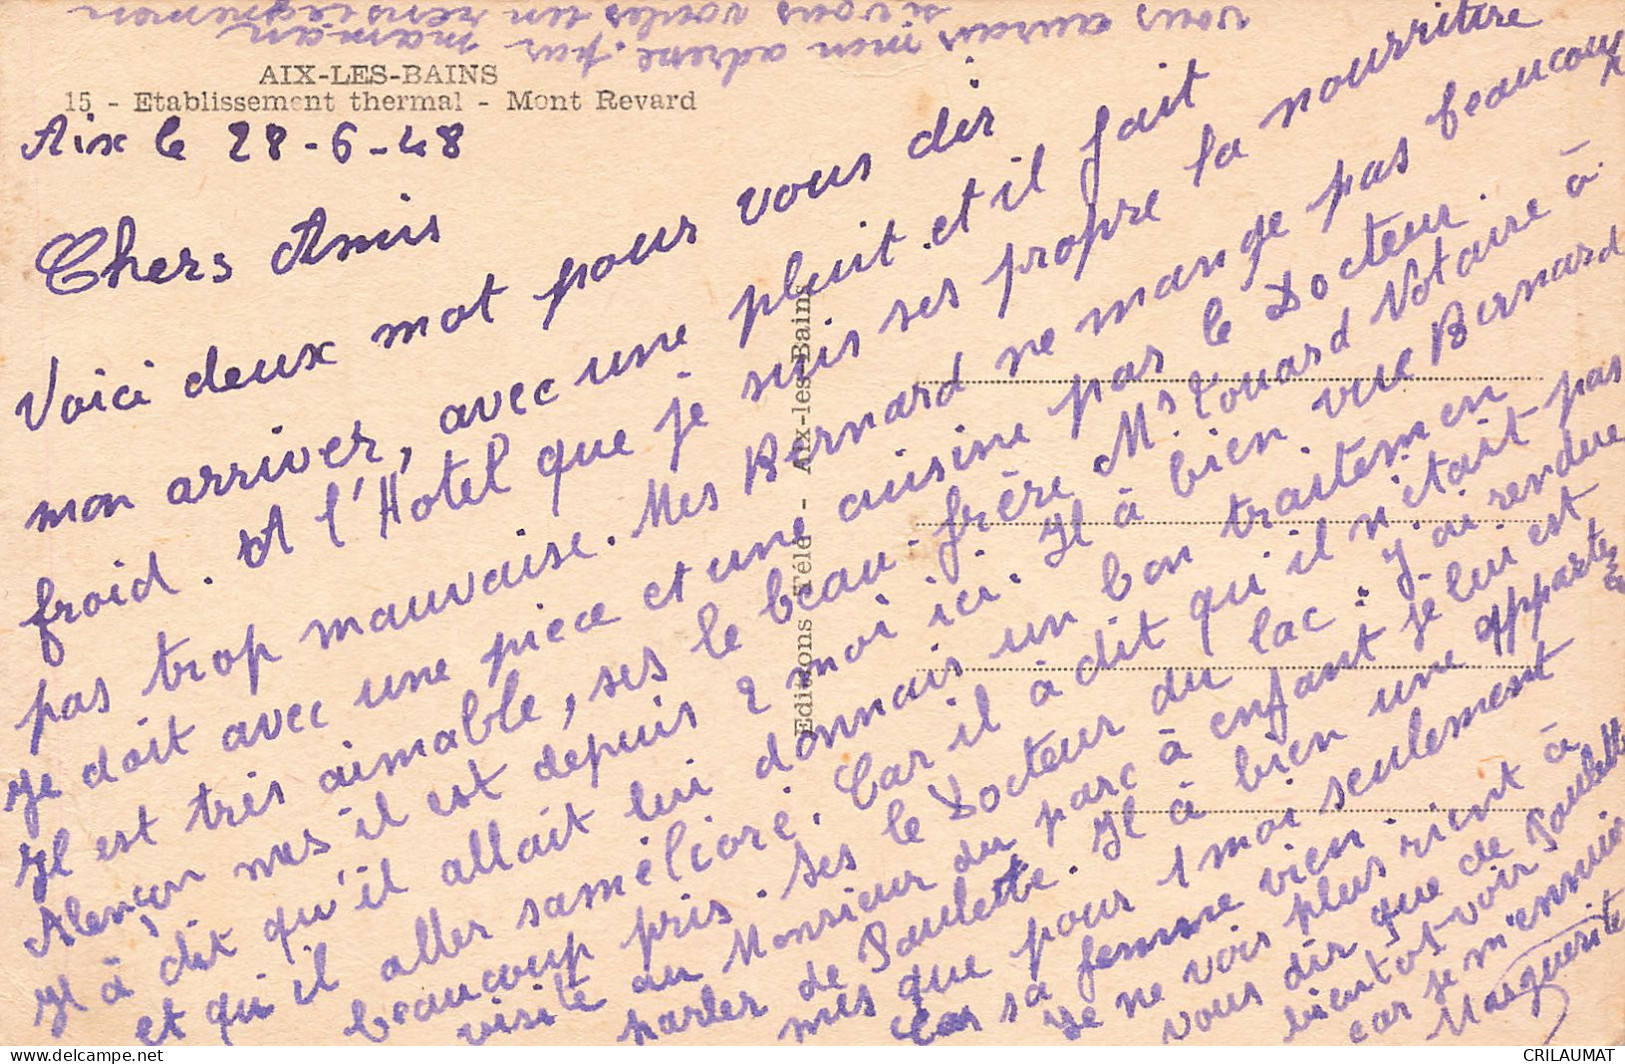 AIX-LES-BAINS
15 - Etablissement thermal - Mont Revard
Editions Télé - Aix-les-Bains
Aix le 28-6-48
Chers Amis
Voici deux mot pour vous dir
mon arriver, avec une pluit et il fait
froid. A l'Hotel que je suis ses propre la nourriture
pas trop mauvaise. Mes Bernard ne mange pas beaucoup
je doit avec une piece et une cuisine pas le Docteur.
Il est très aimable, ses le beau-frère Mr Touard Notaire à
Alençon mes il est depuis 2 moi ici. Il à bien vue Bernard
Il à dit qu'il allait lui donnais un bon traitemen
et qu'il aller saméliore. Car il à dit qu'il n'était pas
beaucoup pris. Ses le Docteur du lac. J'ai rendue
visite au Monsieur du parc à enfant je lui est
parler de Paulette. Il à bien une apparte
mes que pour 1 moi seulement
Car sa femme vien.
Je ne vois plus rient à
vous dir que de Paulette
bientot voir
car je m'ennuie
Marguerite
vous aurais mon adresse par maman
si vous voules un renseignemen
CRILAUMAT
delcampe.net